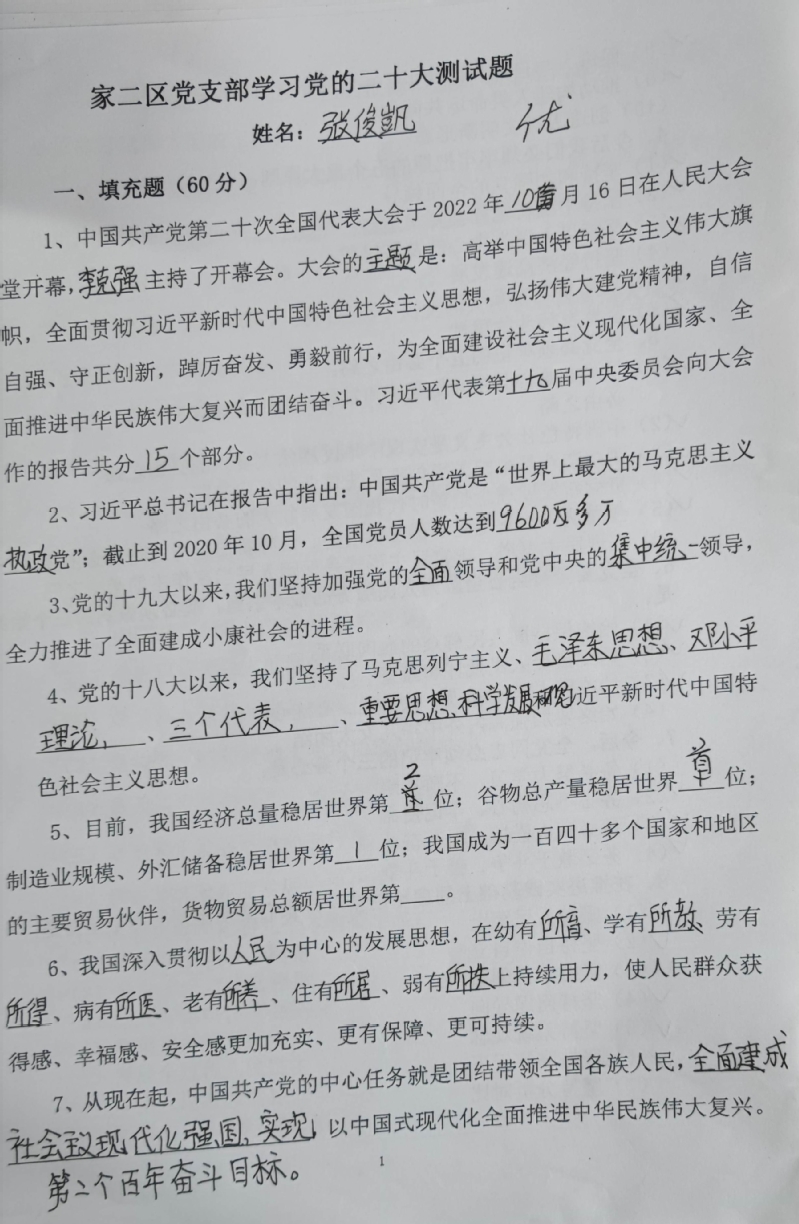 家二区党支部学习党的二十大测试题
姓名：张俊凯 优
一、填充题（60分）
1、中国共产党第二十次全国代表大会于2022年10月16日在人民大会
堂开幕，李克强主持了开幕会。大会的主题是：高举中国特色社会主义伟大旗
帜，全面贯彻习近平新时代中国特色社会主义思想，弘扬伟大建党精神，自信
自强、守正创新，踔厉奋发、勇毅前行，为全面建设社会主义现代化国家、全
面推进中华民族伟大复兴而团结奋斗。习近平代表第十九届中央委员会向大会
作的报告共分15个部分。
2、习近平总书记在报告中指出：中国共产党是“世界上最大的马克思主义
执政党”；截止到2020年10月，全国党员人数达到9600多万
3、党的十九大以来，我们坚持加强党的全面领导和党中央的集中统一领导，
全力推进了全面建成小康社会的进程。
4、党的十八大以来，我们坚持了马克思列宁主义、毛泽东思想、邓小平
理论，、三个代表，、重要思想、科学发展观习近平新时代中国特
色社会主义思想。
5、目前，我国经济总量稳居世界第2位；谷物总产量稳居世界首位；
制造业规模、外汇储备稳居世界第1位；我国成为一百四十多个国家和地区
的主要贸易伙伴，货物贸易总额居世界第____。
6、我国深入贯彻以人民为中心的发展思想，在幼有所育、学有所教、劳有
所得、病有所医、老有所养、住有所居、弱有所扶上持续用力，使人民群众获
得感、幸福感、安全感更加充实、更有保障、更可持续。
7、从现在起，中国共产党的中心任务就是团结带领全国各族人民，全面建成
社会主义现代化强国、实现，以中国式现代化全面推进中华民族伟大复兴。
第二个百年奋斗目标。
1